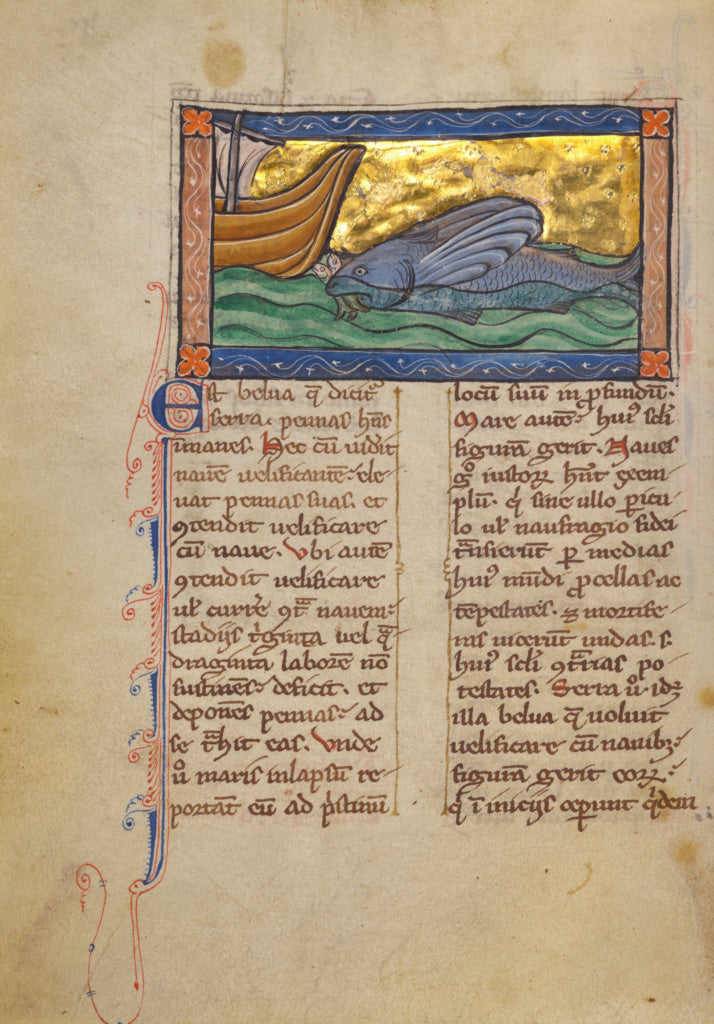 Est belua q̄ dicit᷑
serra. pennas hn̄s
inmanes. Hec cū uidit
nauē uelificantē. ele-
uat pennas suas. et
ꝯtendit uelificare
cū naue. Vbi autē
ꝯtendit uelificare
ul̓ curr̄e ꝯt̄ nauem.
stadijs t̓ginta uel q̄-
draginta laborē nō
sustinēs. deficit. et
deponēs pennas. ad
se t̄hit eas. Vnde
u̓o maris inlapsū re-
portāt eū ad p̓stinū
locū suū in ꝓfundū.
Mare autē. hui᷒ scl̓i
figurā gerit. Naues
g̊ iustoꝝ hn̄t exem-
plū. q̓ sine ullo ꝑicu-
lo ul̓ naufragio fidei
t̄nsierūt ꝑ medias
hui᷒ mūdi ꝓcellas ac
tēpestates. ⁊ mortife-
ras uicerūt undas. s.
hui᷒ scl̓i ꝯt̄rias po-
testates. Serra u̓o. idꝫ
illa belua q̄ uoluit
uelificare cū nauibꝫ.
figurā gerit eoꝝ.
q̓ ī inicijs ceꝑunt q̓dem